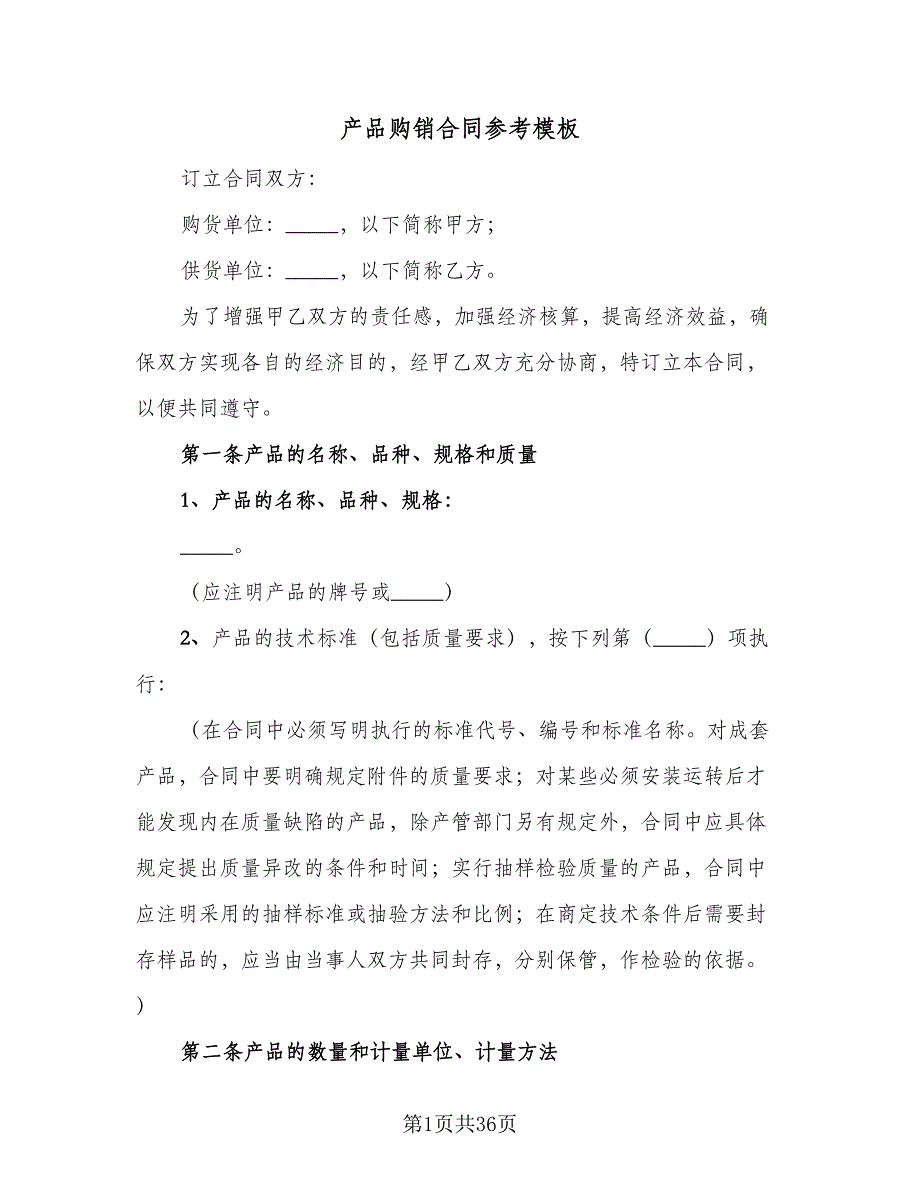 产品购销合同参考模板
订立合同双方：
购货单位：_____，以下简称甲方；
供货单位：_____，以下简称乙方。
为了增强甲乙双方的责任感，加强经济核算，提高经济效益，确
保双方实现各自的经济目的，经甲乙双方充分协商，特订立本合同，
以便共同遵守。
第一条产品的名称、品种、规格和质量
1、产品的名称、品种、规格：
_____。
（应注明产品的牌号或_____）
2、产品的技术标准（包括质量要求），按下列第（_____）项执
行：
（在合同中必须写明执行的标准代号、编号和标准名称。对成套
产品，合同中要明确规定附件的质量要求；对某些必须安装运转后才
能发现内在质量缺陷的产品，除产管部门另有规定外，合同中应具体
规定提出质量异改的条件和时间；实行抽样检验质量的产品，合同中
应注明采用的抽样标准或抽验方法和比例；在商定技术条件后需要封
存样品的，应当由当事人双方共同封存，分别保管，作检验的依据。
）
第二条产品的数量和计量单位、计量方法
第1页共36页